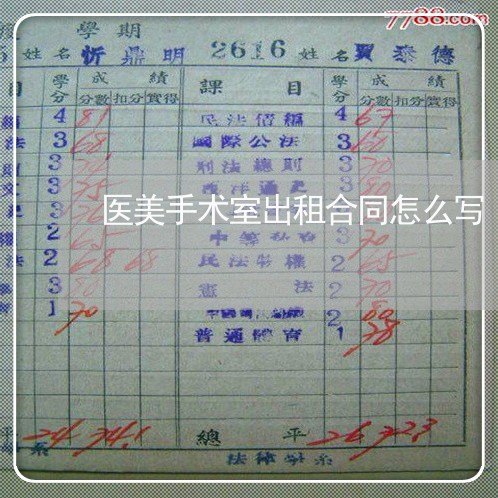 7788.com
學期
姓名 忻鼎明 2616 姓名 賈泰德
目 學分 成績 課目 學分 成績
分數 扣分 實得 分數 扣分 實得
4 81 民法債編 4 67
法 3 68 國際公法 3 60
3 刑法總則 3 70
3 75 西洋通史 3 80
医美手术室出租合同怎么写
2 65 3 70
法 2 68 68 民法物權 2 65
3 80 憲法 2 70
1 70 2 80
普通體育 1 78
平 24 74.1 總平 26 72.3
系 法律學系